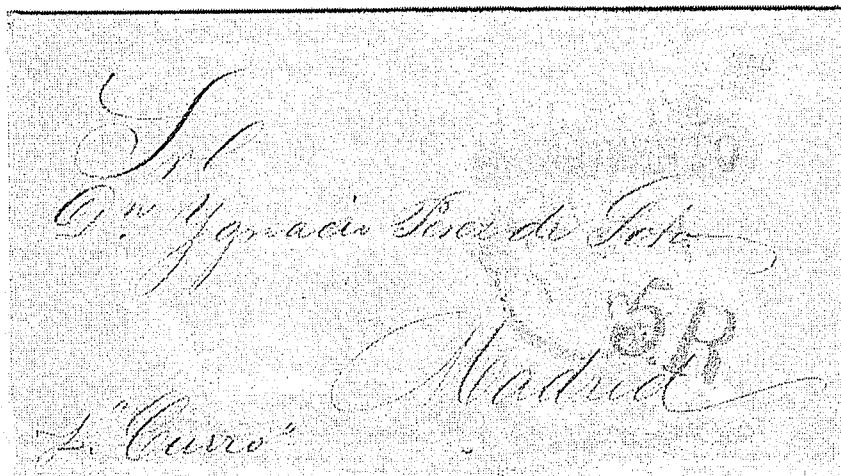 Sr
Dn Ygnacio Perez de Soto
5R
Madrid
p. "Curro"